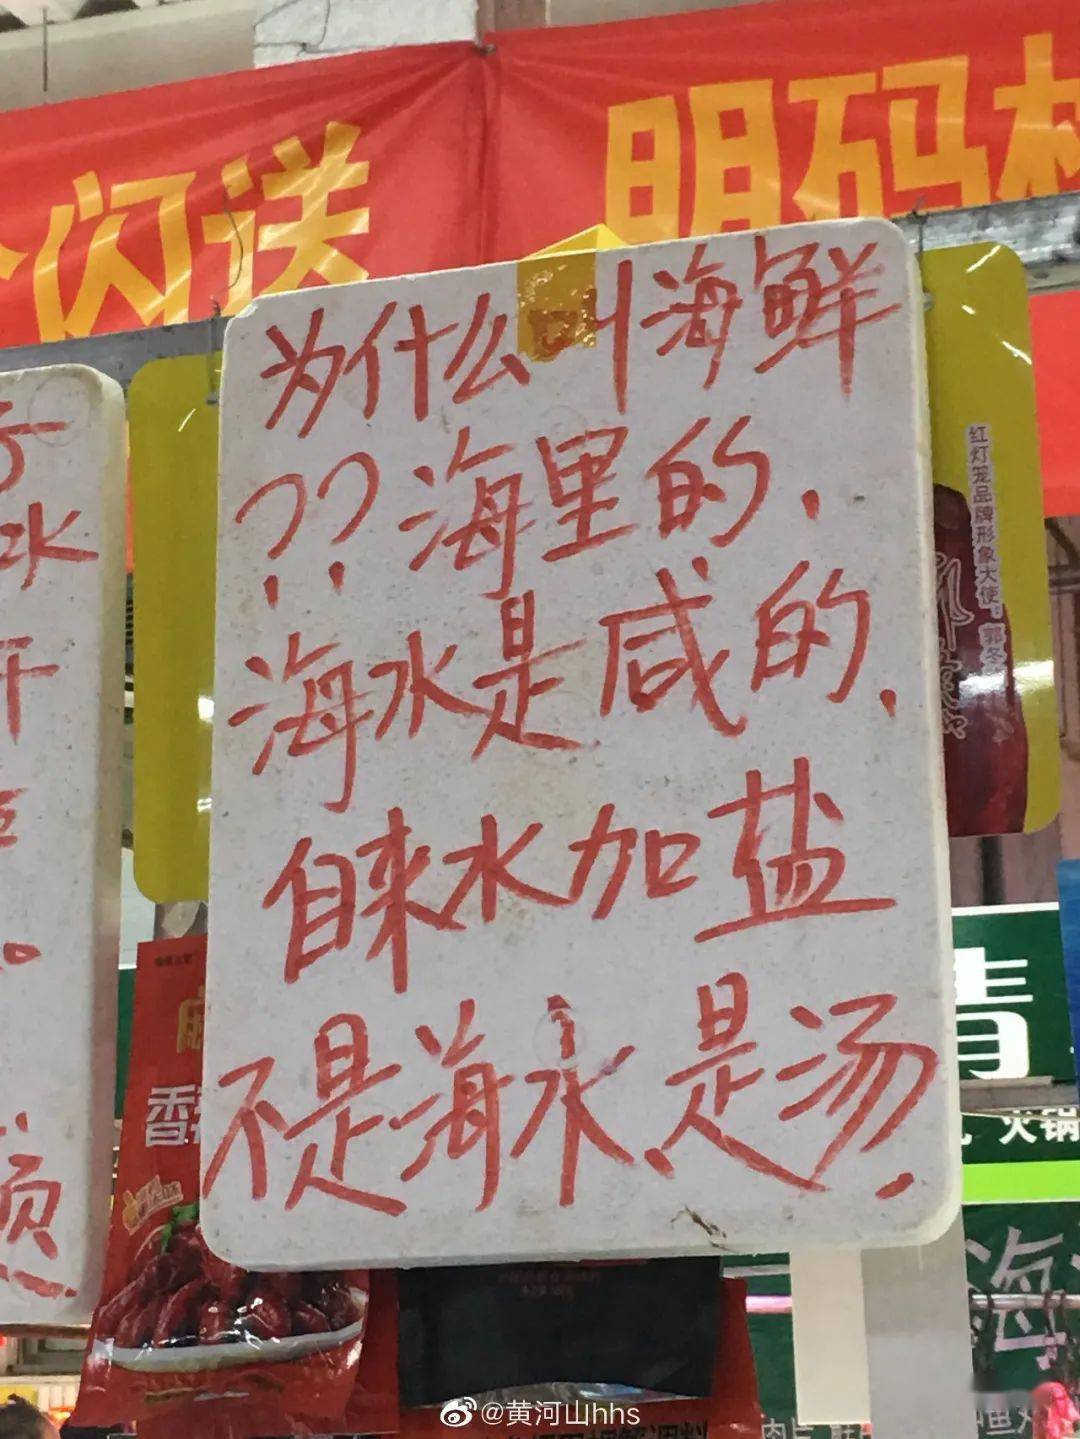 闪送 明码
为什么叫海鲜
??海里的,
海水是咸的,
自来水加盐
不是海水,是汤.
水
红灯笼品牌形象大使:郭冬
香
青
火锅
海
肉片
@黄河山hhs